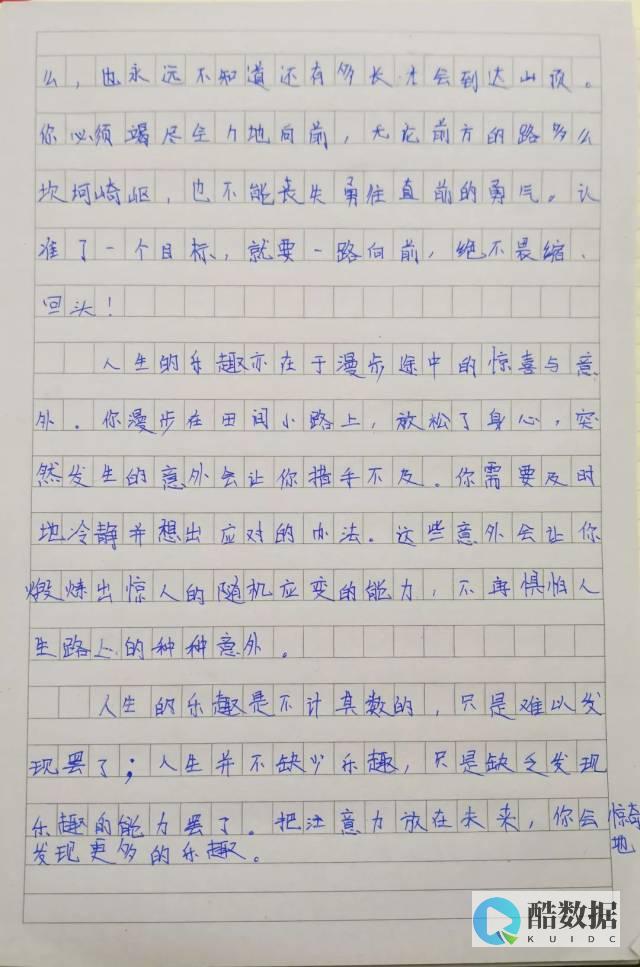 么，也永远不知道还有多长才会到达山顶。
你必须竭尽全力地向前，无论前方的路多么
坎坷崎岖，也不能丧失勇往直前的勇气。认
准了一个目标，就要一路向前，绝不畏缩、
回头！
人生的乐趣亦在于漫步途中的惊喜与意
外．你漫步在田间小路上，放松了身心，突
然发生的意外会让你措手不及．你需要及时
地冷静并想出应对的办法．这些意外会让你
煅炼出惊人的随机应变的能力，不再惧怕人
生路上的种种意外。
人生的乐趣是不计其数的，只是难以发
现罢了；人生并不缺少乐趣，只是缺乏发现
乐趣的能力罢了。把注意力放在未来，你会惊奇地
发现更多的乐趣。
酷数据
KUIDC